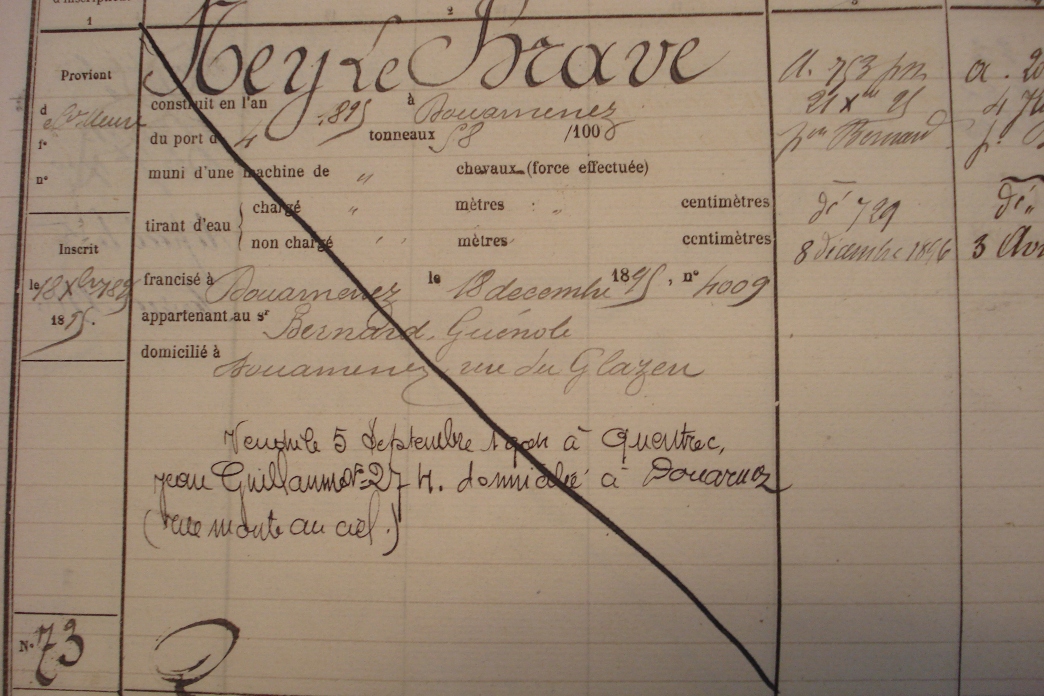 d'inscription
1
2
Provient
d
f°
n°
Ney Le Brave
construit en l'an 1895 à Douarnenez
du port de 4 tonneaux 58 /100
muni d'une machine de " chevaux (force effectuée)
tirant d'eau { chargé " mètres " centimètres
non chargé " mètres " centimètres
Inscrit
le 18 Xbre 189
1895.
francisé à Douarnenez le 18 decembre 1895, n° 4009
appartenant au sr Bernard, Guénolé
domicilié à Douarnenez, rue du Glazen
Vendu le 5 Septembre à Quentrec,
jean Guillaume 27 H. domicilié à Douarnez
(rue monte au ciel.)
N° 73
a. 753
21 Xbre 95
pr Bernard
dé 729
8 décembre 1896
a. 20
dé"
3 Avr